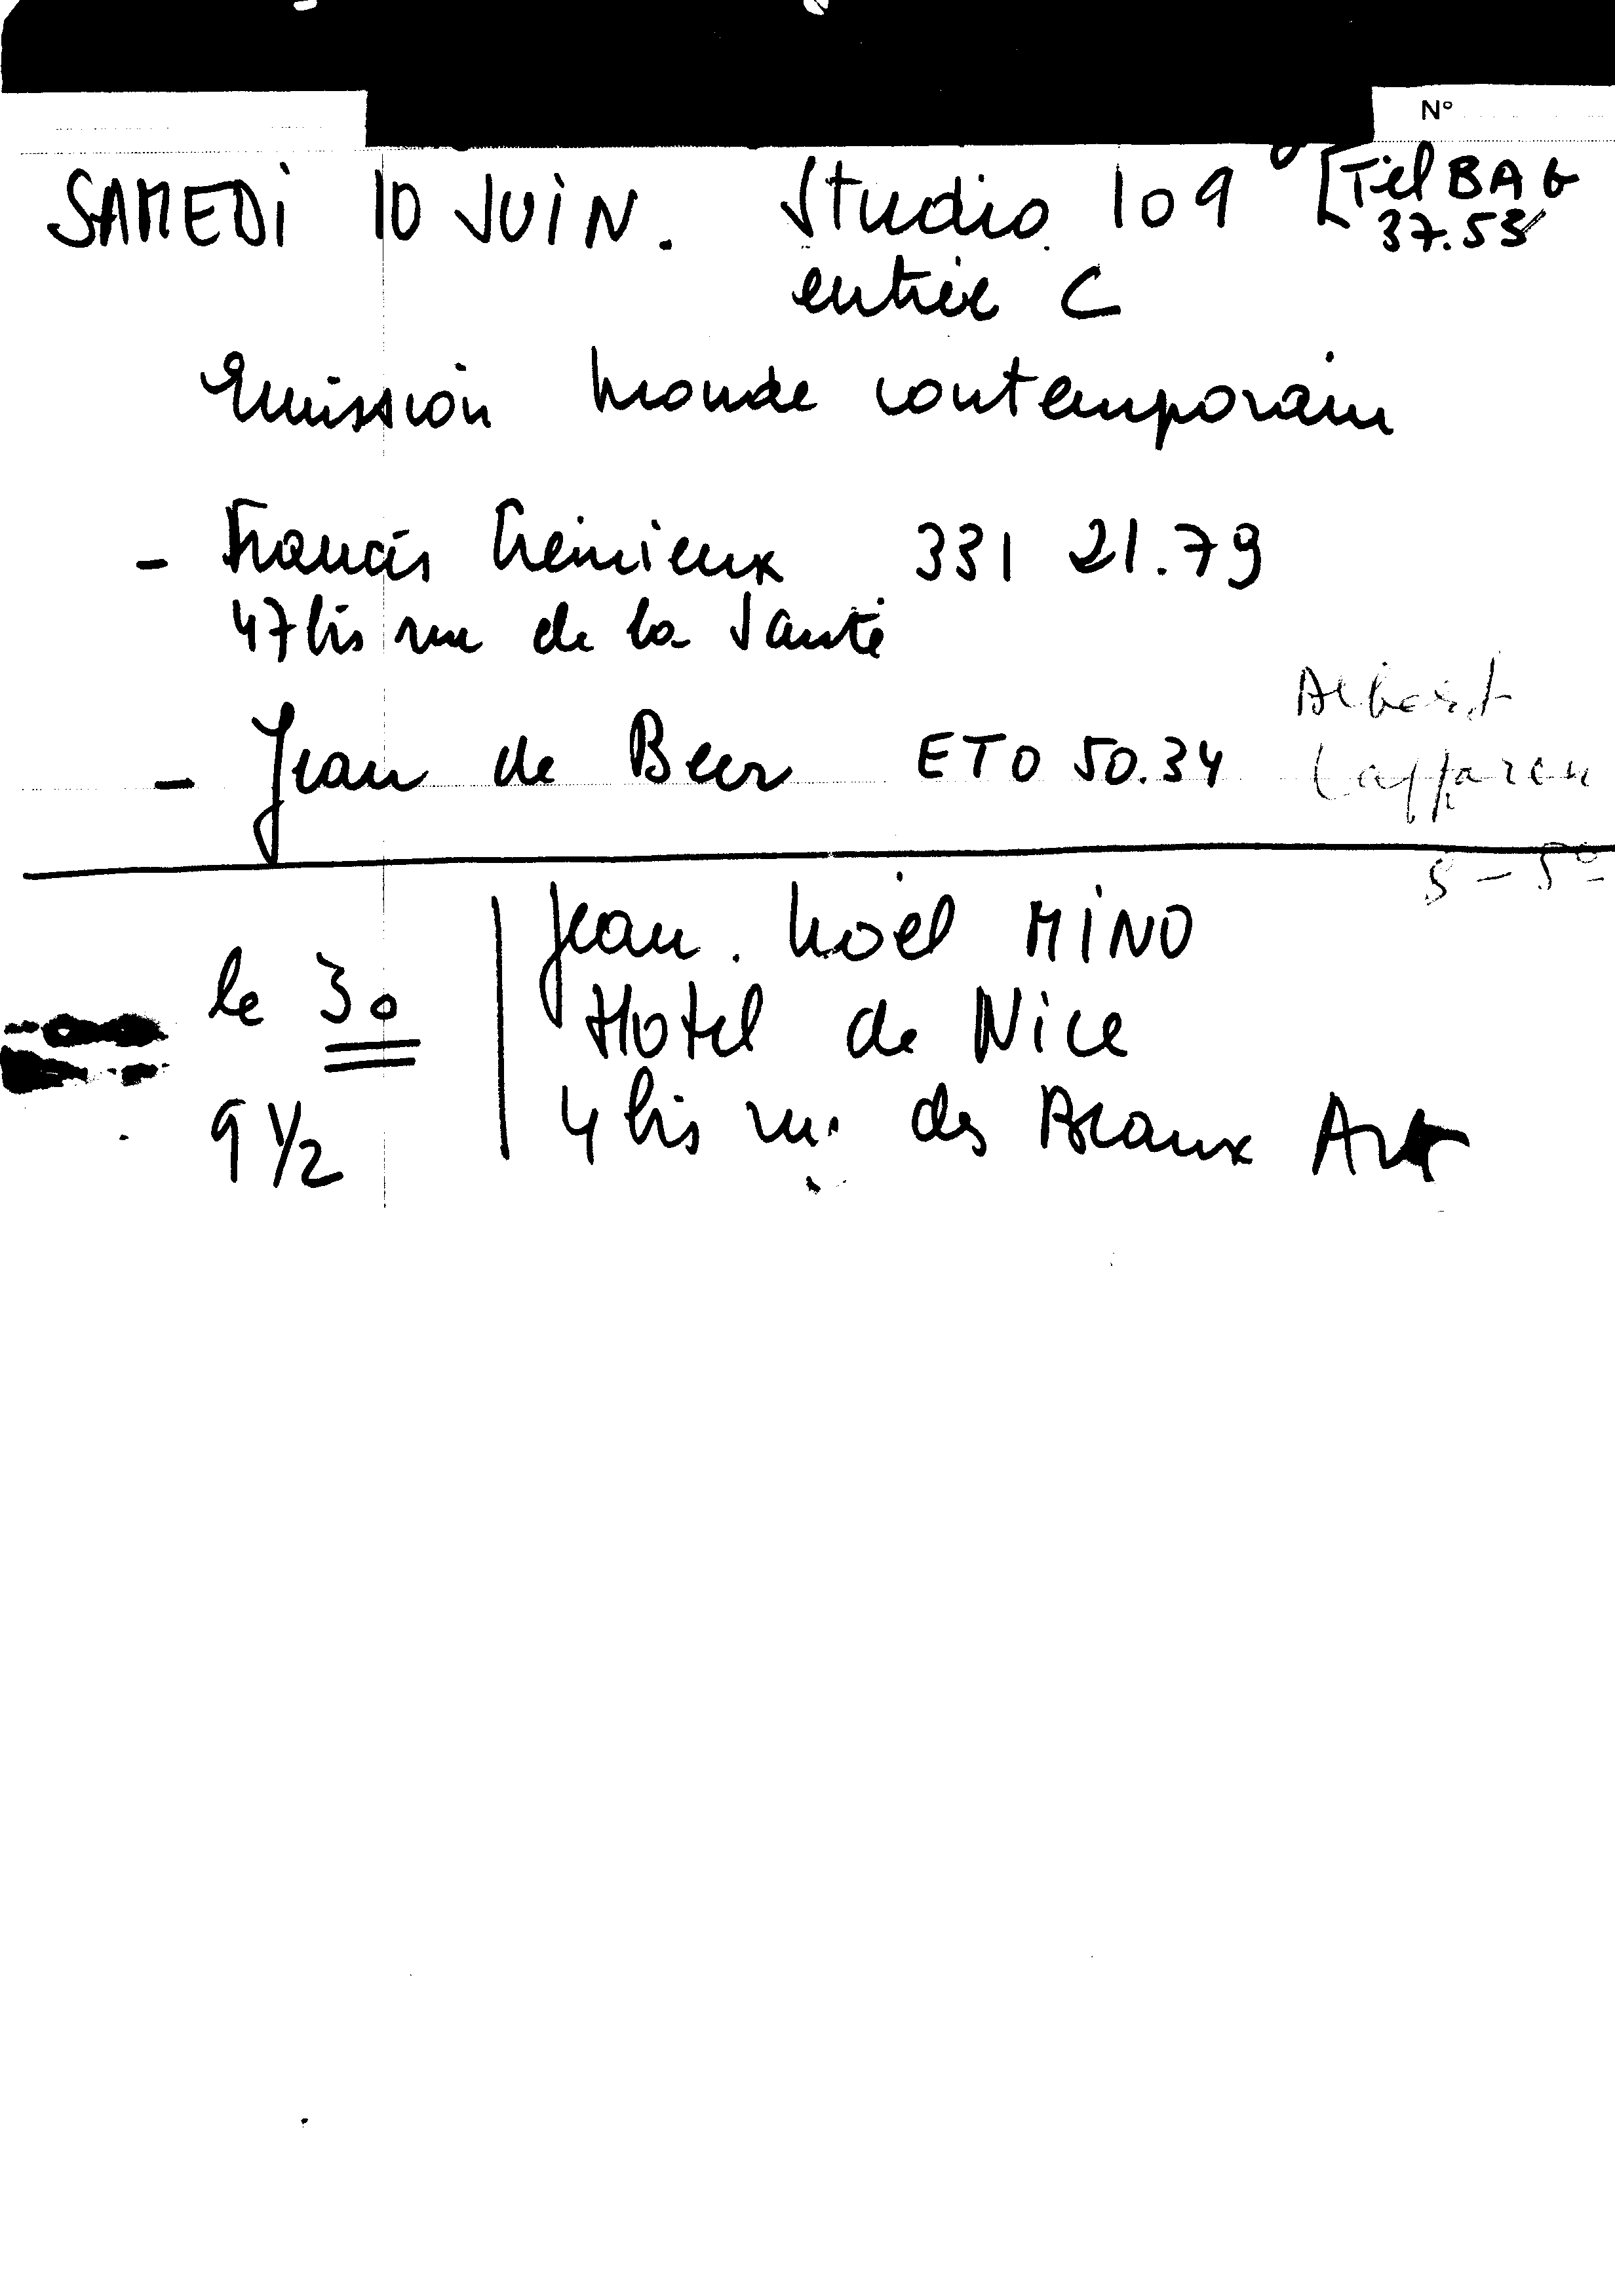 N°
SAMEDI 10 JUIN. Studio 109 [Tél BAG
37.53
entrée C
Emission monde contemporain
- Francis Crémieux 331 21.79
47 bis rue de la Santé
Albert
- Jean de Beer ETO 50.34
5 - 5°
Jean. Noël MINO
le 30
Hotel de Nice
9 1/2
4 bis rue des Beaux Art